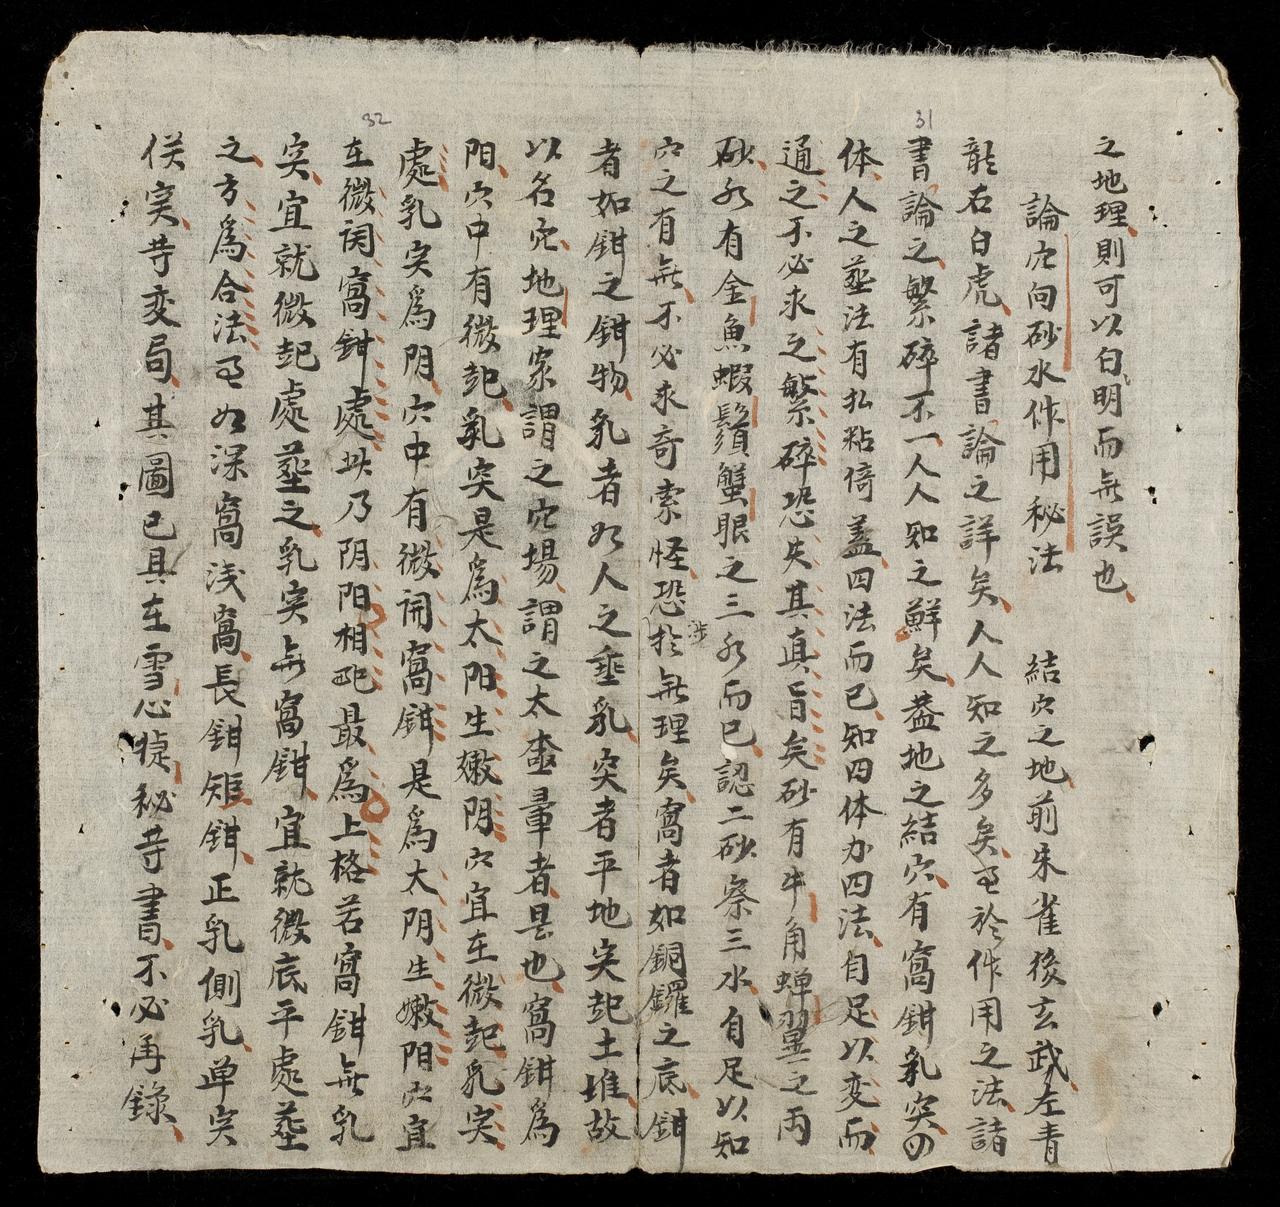 之地理則可以自明而無誤也
論穴向砂水作用秘法 結穴之地前朱雀後玄武左青
龍右白虎諸書論之詳矣人人知之多矣至於作用之法諸
書論之繁碎不一人人知之鮮矣葢地之結穴有窩鉗乳突四
体人之塟法有弘粘倚盖四法而已知四体办四法自足以変而
通之不必求之繁碎恐失其真旨矣砂有牛角蝉翼之両
砂水有金魚蝦鬚蟹眼之三水而已認二砂察三水自足以知
穴之有無不必求奇索怪恐涉於無理矣窩者如銅鑼之底鉗
者如鉗之鉗物乳者如人之垂乳突者平地突起土堆故
以名穴地理家謂之穴塲謂之太極暈者是也窩鉗為
阳穴中有微起乳突是為太阳生嫩阴穴宜在微起乳突
處乳突為阴穴中有微開窩鉗是為太阴生嫩阳穴宜
在微開窩鉗處此乃阴阳相配最為上格若窩鉗無乳
突宜就微起處塟之乳突無窩鉗宜就微底平處塟
之方為合法至如深窩浅窩長鉗短鉗正乳側乳单突
双突等変局其圖已具在雪心 秘等書不必再錄
31
32